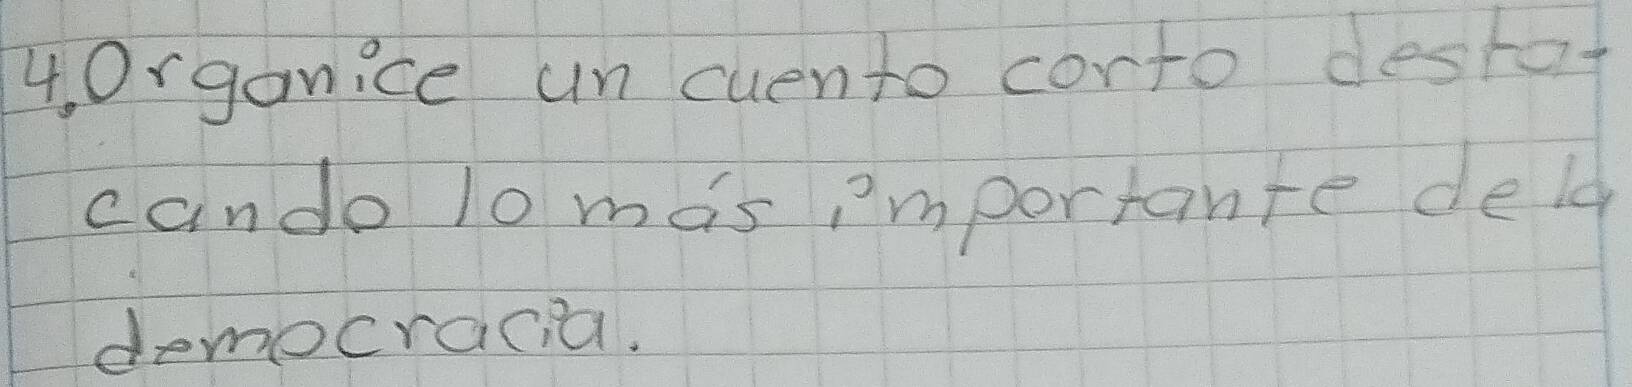 4. Organice un cuento corto desta-
cando lo más importante de la
democracia.